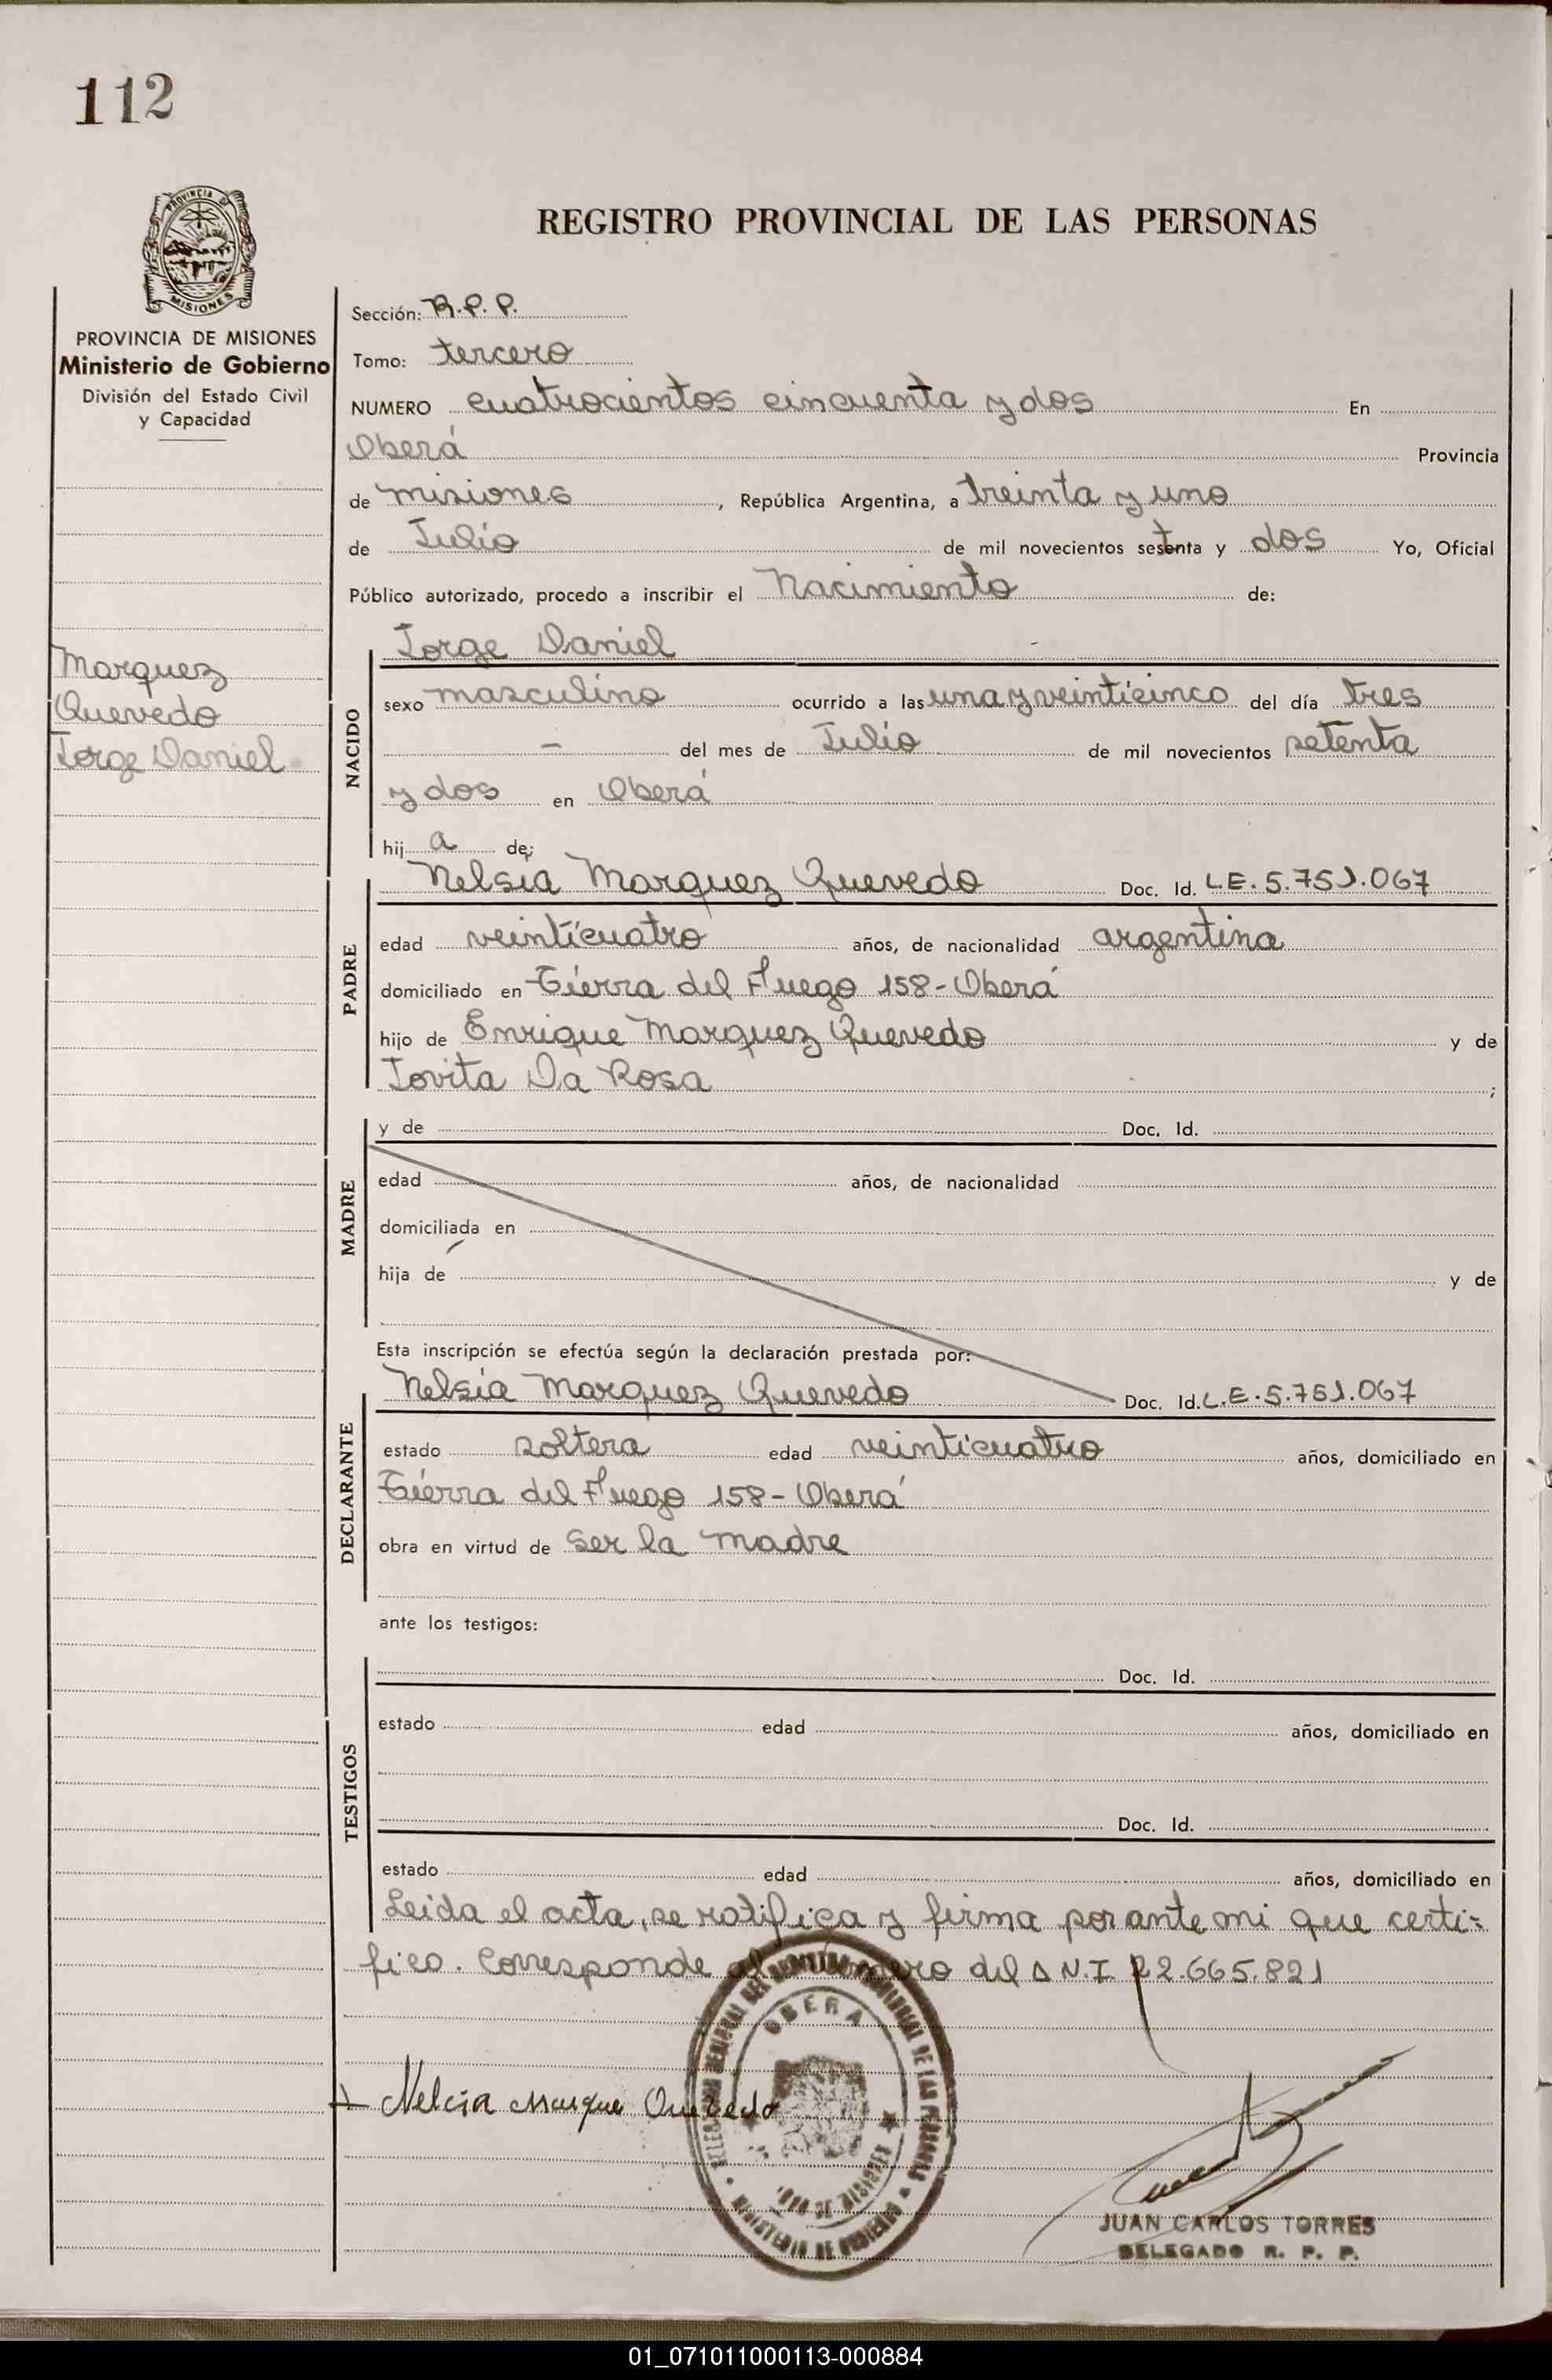 112
PROVINCIA DE MISIONES
Ministerio de Gobierno
División del Estado Civil
y Capacidad
Marquez
Quevedo
Jorge Daniel
REGISTRO PROVINCIAL DE LAS PERSONAS
Sección: R.P.P.
Tomo: tercero
NUMERO cuatrocientos cincuenta y dos En
Oberá Provincia
de misiones, República Argentina, a treinta y uno
de Julio de mil novecientos setenta y dos Yo, Oficial
Público autorizado, procedo a inscribir el Nacimiento de:
NACIDO
Jorge Daniel
sexo masculino ocurrido a las una y veinticinco del día tres
— del mes de Julio de mil novecientos setenta
y dos en Oberá
hij a de;
PADRE
Nelsia Marquez Quevedo Doc. Id. L.E. 5.751.067
edad veinticuatro años, de nacionalidad argentina
domiciliado en Tierra del Fuego 158-Oberá
hijo de Enrique Marquez Quevedo y de
Jovita Da Rosa ;
MADRE
y de Doc. Id.
edad años, de nacionalidad
domiciliada en
hija de y de
Esta inscripción se efectúa según la declaración prestada por:
DECLARANTE
Nelsia Marquez Quevedo Doc. Id. L.E. 5.751.067
estado soltera edad veinticuatro años, domiciliado en
Tierra del Fuego 158-Oberá
obra en virtud de ser la madre
ante los testigos:
TESTIGOS
Doc. Id.
estado edad años, domiciliado en
Doc. Id.
estado edad años, domiciliado en
Leida el acta, se ratifica y firma por ante mi que certi-
fico. Corresponde al numero del D N.I 22.665.821
OBERA
Nelcia Marque Quevedo
JUAN CARLOS TORRES
DELEGADO R. P. P.
01_071011000113-000884